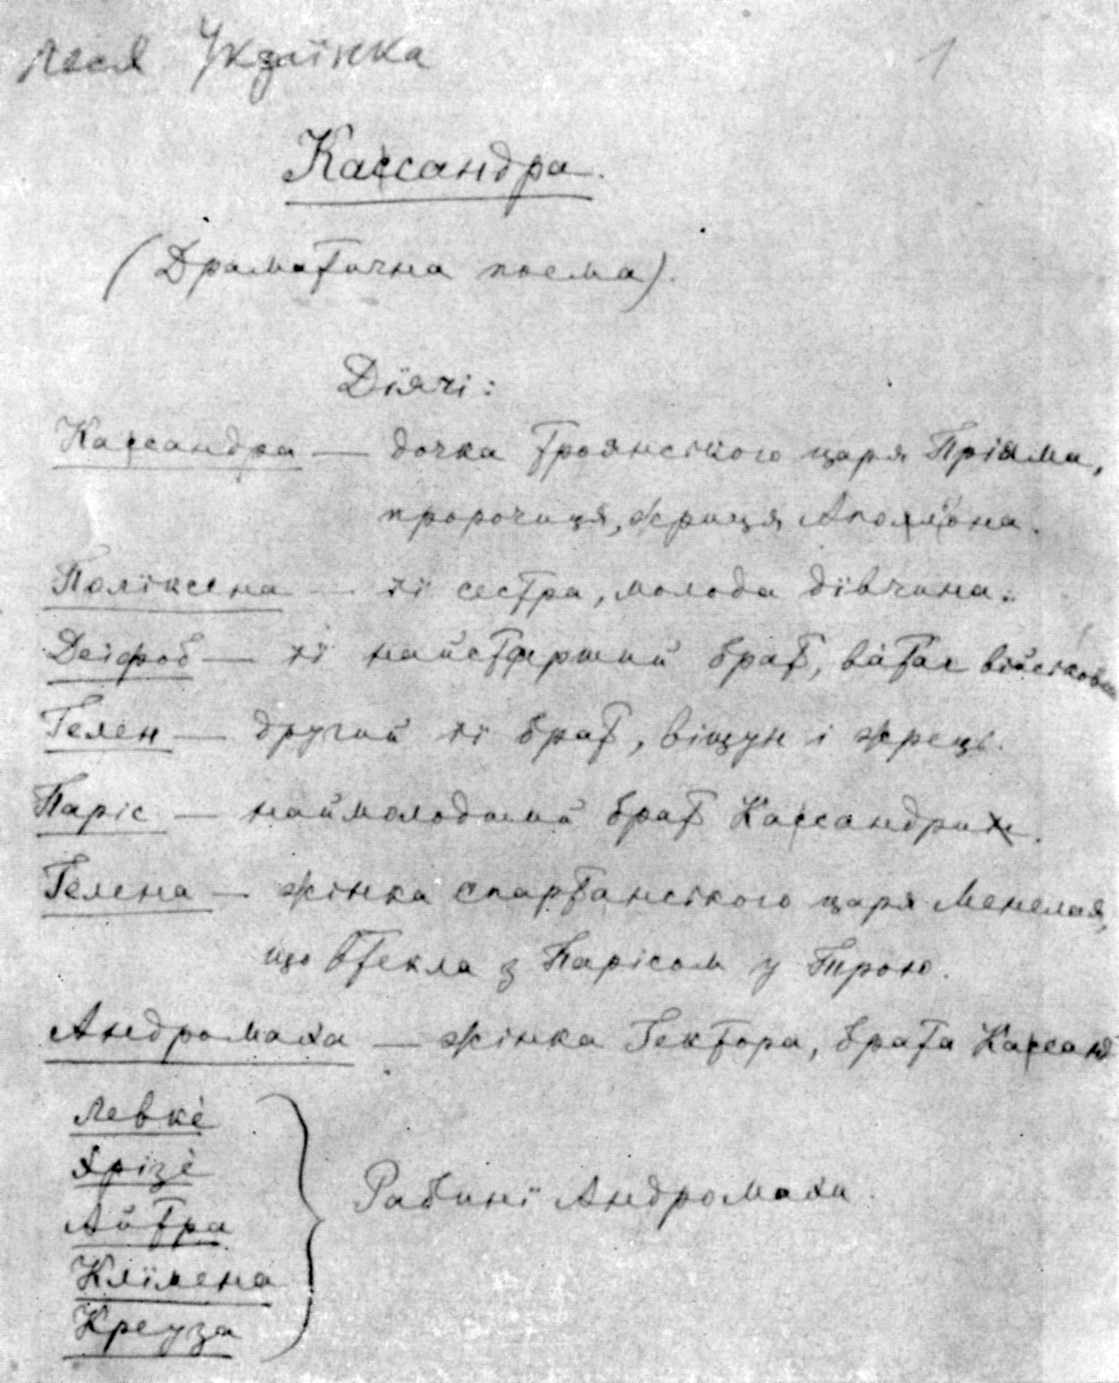 Леся Українка 1
Кассандра.
(Драматична поема).
Діячі:
Кассандра — дочка троянського царя Пріяма,
пророчиця, жриця Аполлона.
Поліксена — її сестра, молода дівчина.
Деіфоб — її найстарший брат, ватаг військовий
Гелен — другий її брат, віщун і жрець.
Паріс — наймолодший брат Кассандри.
Гелена — жінка спартанського царя Менелая,
що втекла з Парісом у Трою.
Андромаха — жінка Гектора, брата Кассанд
Левкé
Хрізé
Айтра
Клїмена
Креуза
Рабині Андромахи.